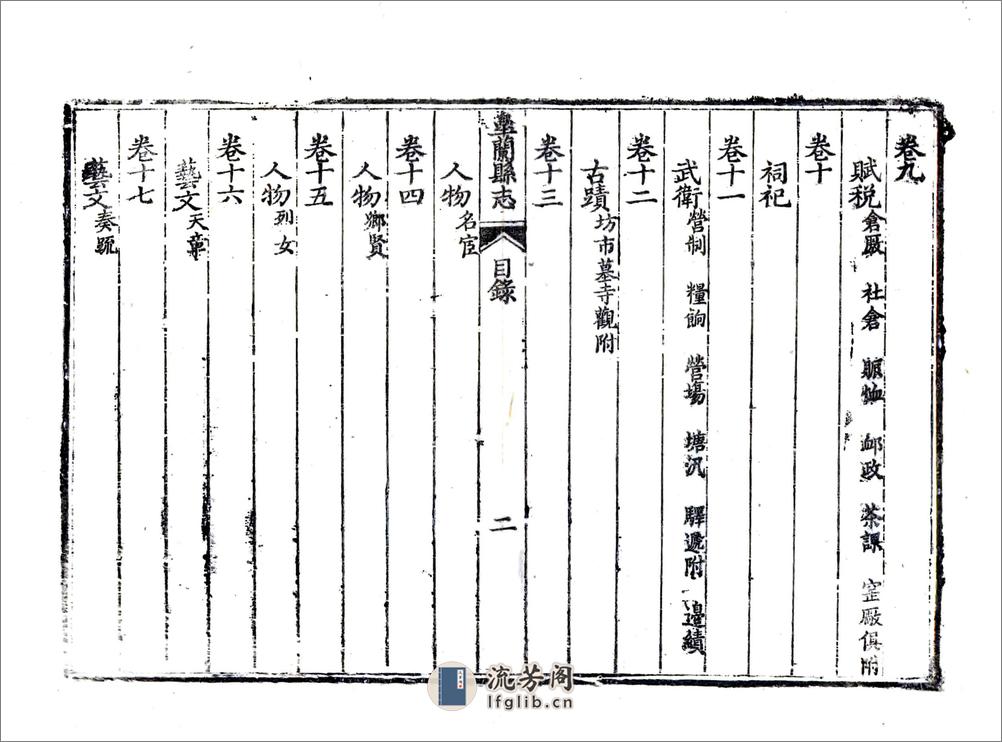 卷九
賦税倉厫 社倉 賑恤 䘏政 茶課 窑厰俱附
卷十
祠祀
卷十一
武衛營制 糧餉 營塲 塘汛 驛遞附 邉績
卷十二
古蹟坊市墓寺觀附
卷十三
臯蘭縣志 目錄 二
人物名宦
卷十四
人物鄉賢
卷十五
人物列女
卷十六
藝文天章
卷十七
藝文奏疏
流芳阁
lfglib.cn